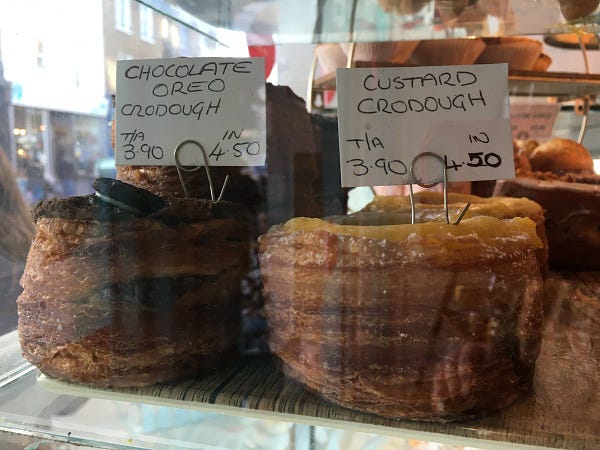 CHOCOLATE
OREO
CRODOUGH
T/A IN
3.90 4.50
CUSTARD
CRODOUGH
T/A IN
3.90 4.50